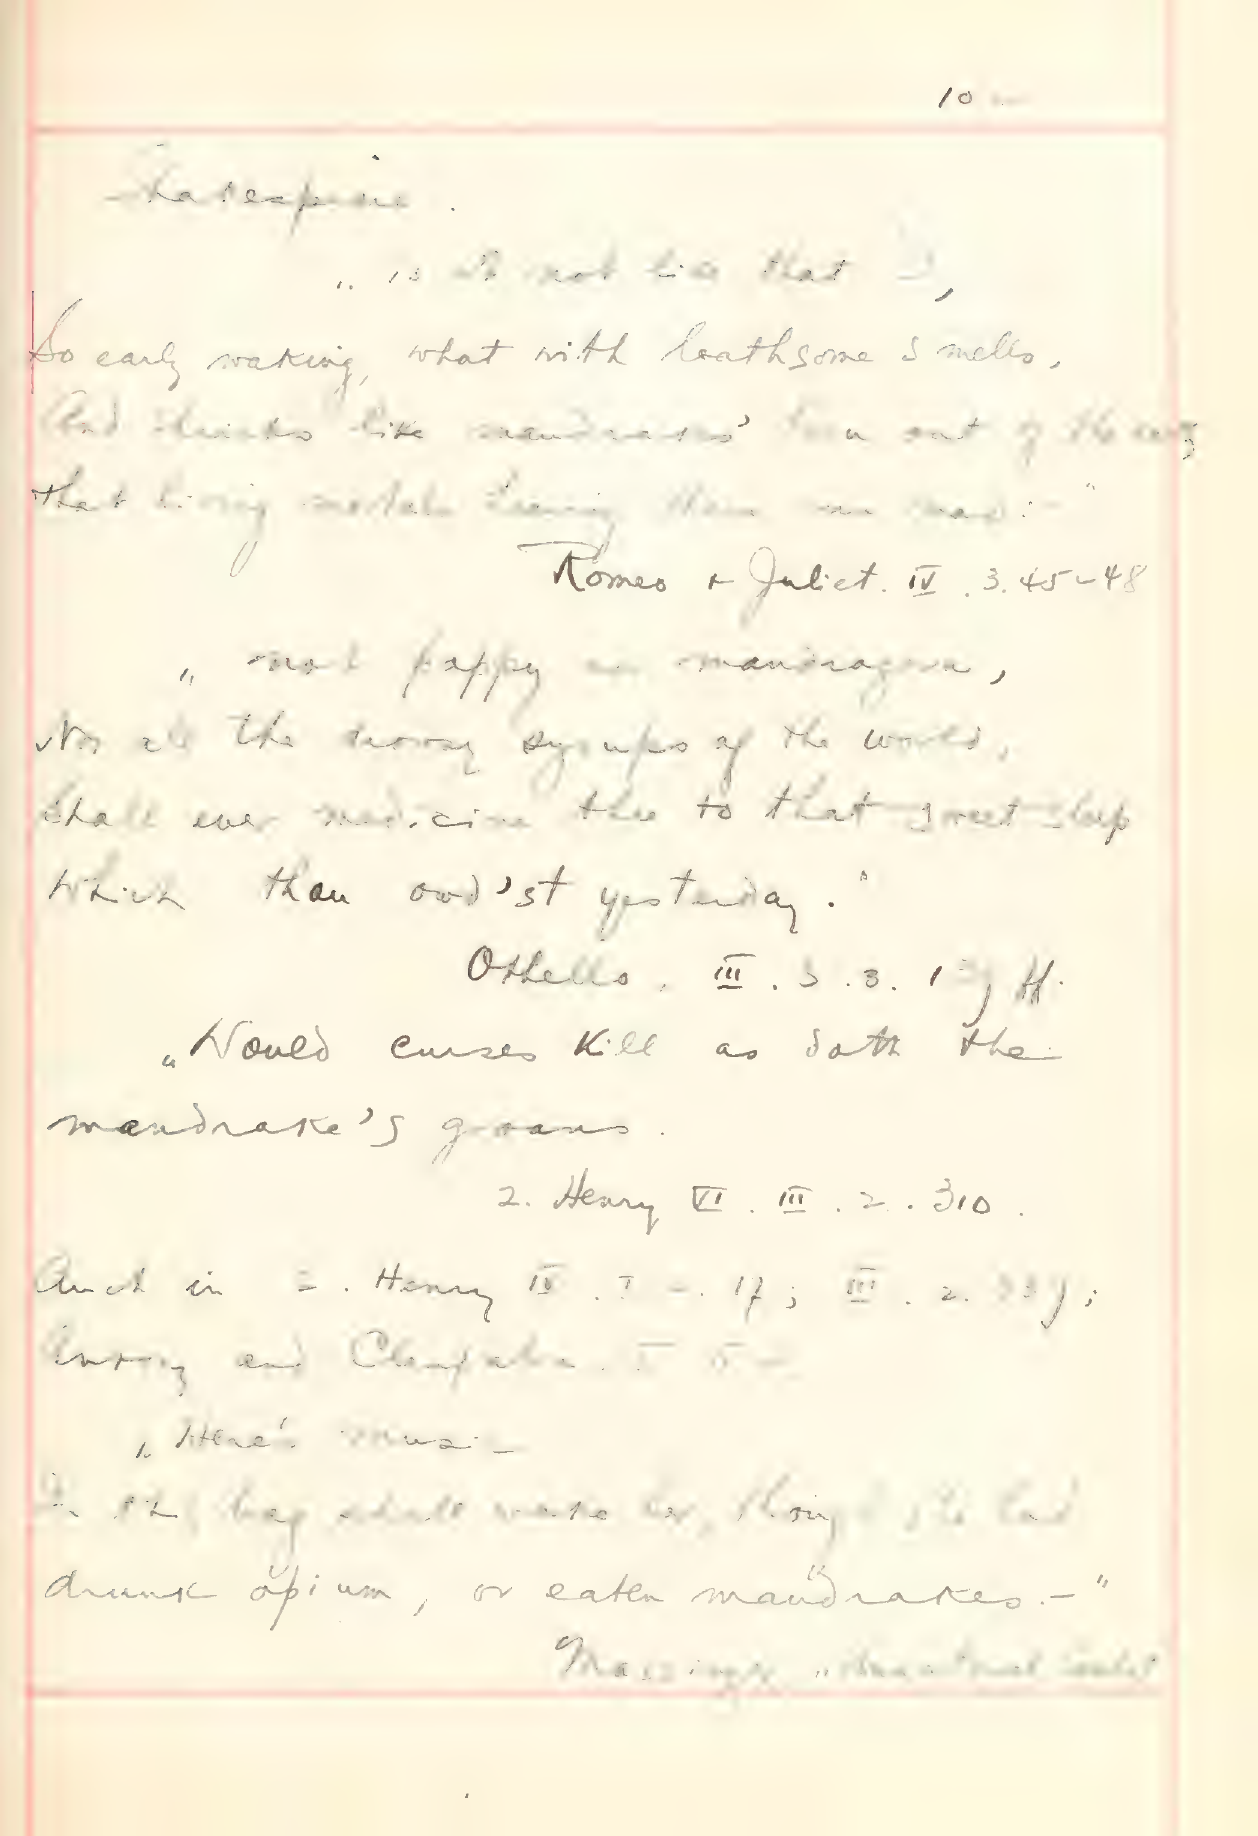 10
Shakespeare.
„ is it not like that I,
So early waking, what with loathsome smells,
And shrieks like mandrakes' torn out of the earth
that living mortals hearing them run mad:-"
Romeo + Juliet. IV. 3. 45-48
„ not poppy nor mandragora,
Nor all the drowsy syrups of the world,
Shall ever medicine thee to that sweet sleep
Which thou owd'st yesterday."
Othello. III. 3.
„Would curses kill as doth the
mandrake's groans.
2. Henry VI. III. 2. 310.
Auch in 2. Henry IV. I 17; III. 2.
Antony and Cleopatra. I 5
„Here's music
In this bag shall wake her, though she had
drunk opium, or eaten mandrakes.-"
Massinger „Unnatural Combat